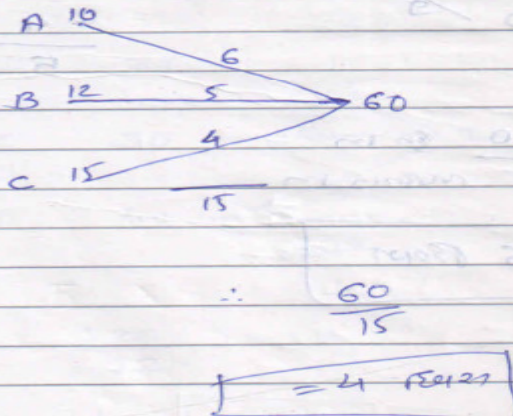 A 10
6
B 12 5 60
4
C 15
15
∴ 60/15
= 4 दिवस